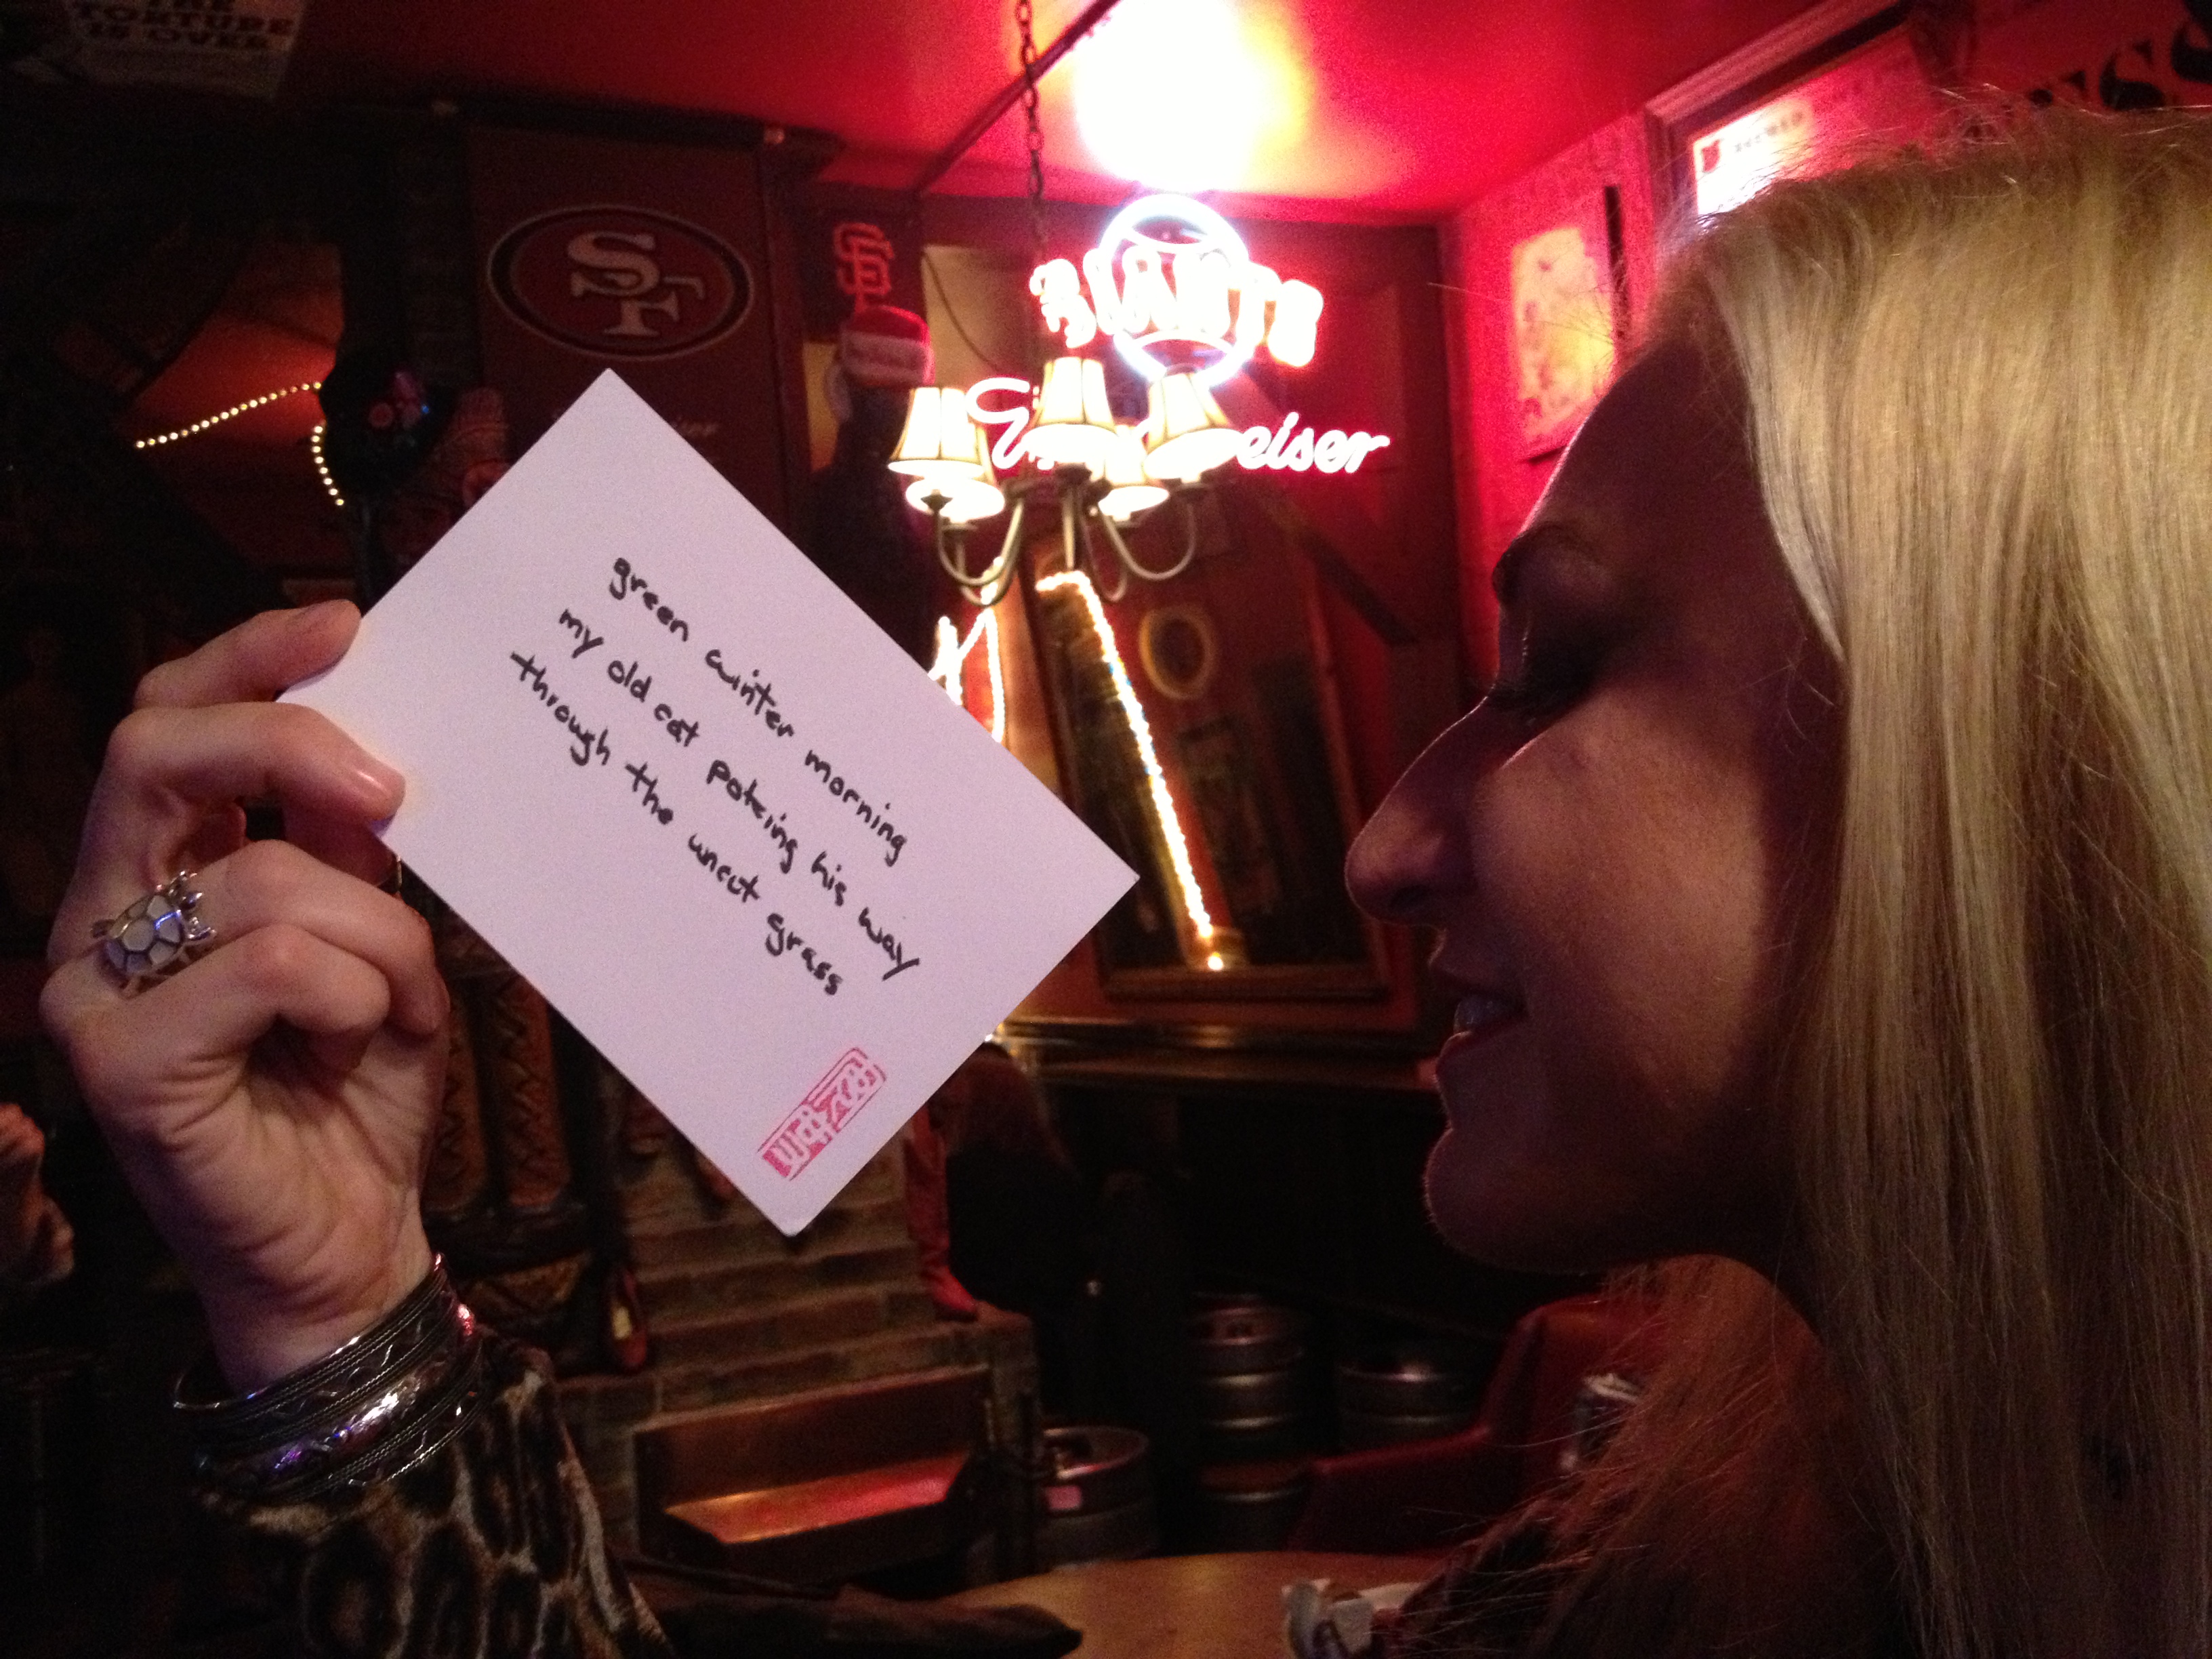 THE
TORTURE
IS OVER
SF
SF
GIANTS
eiser
green winter morning
my old cat poking his way
through the uncut grass